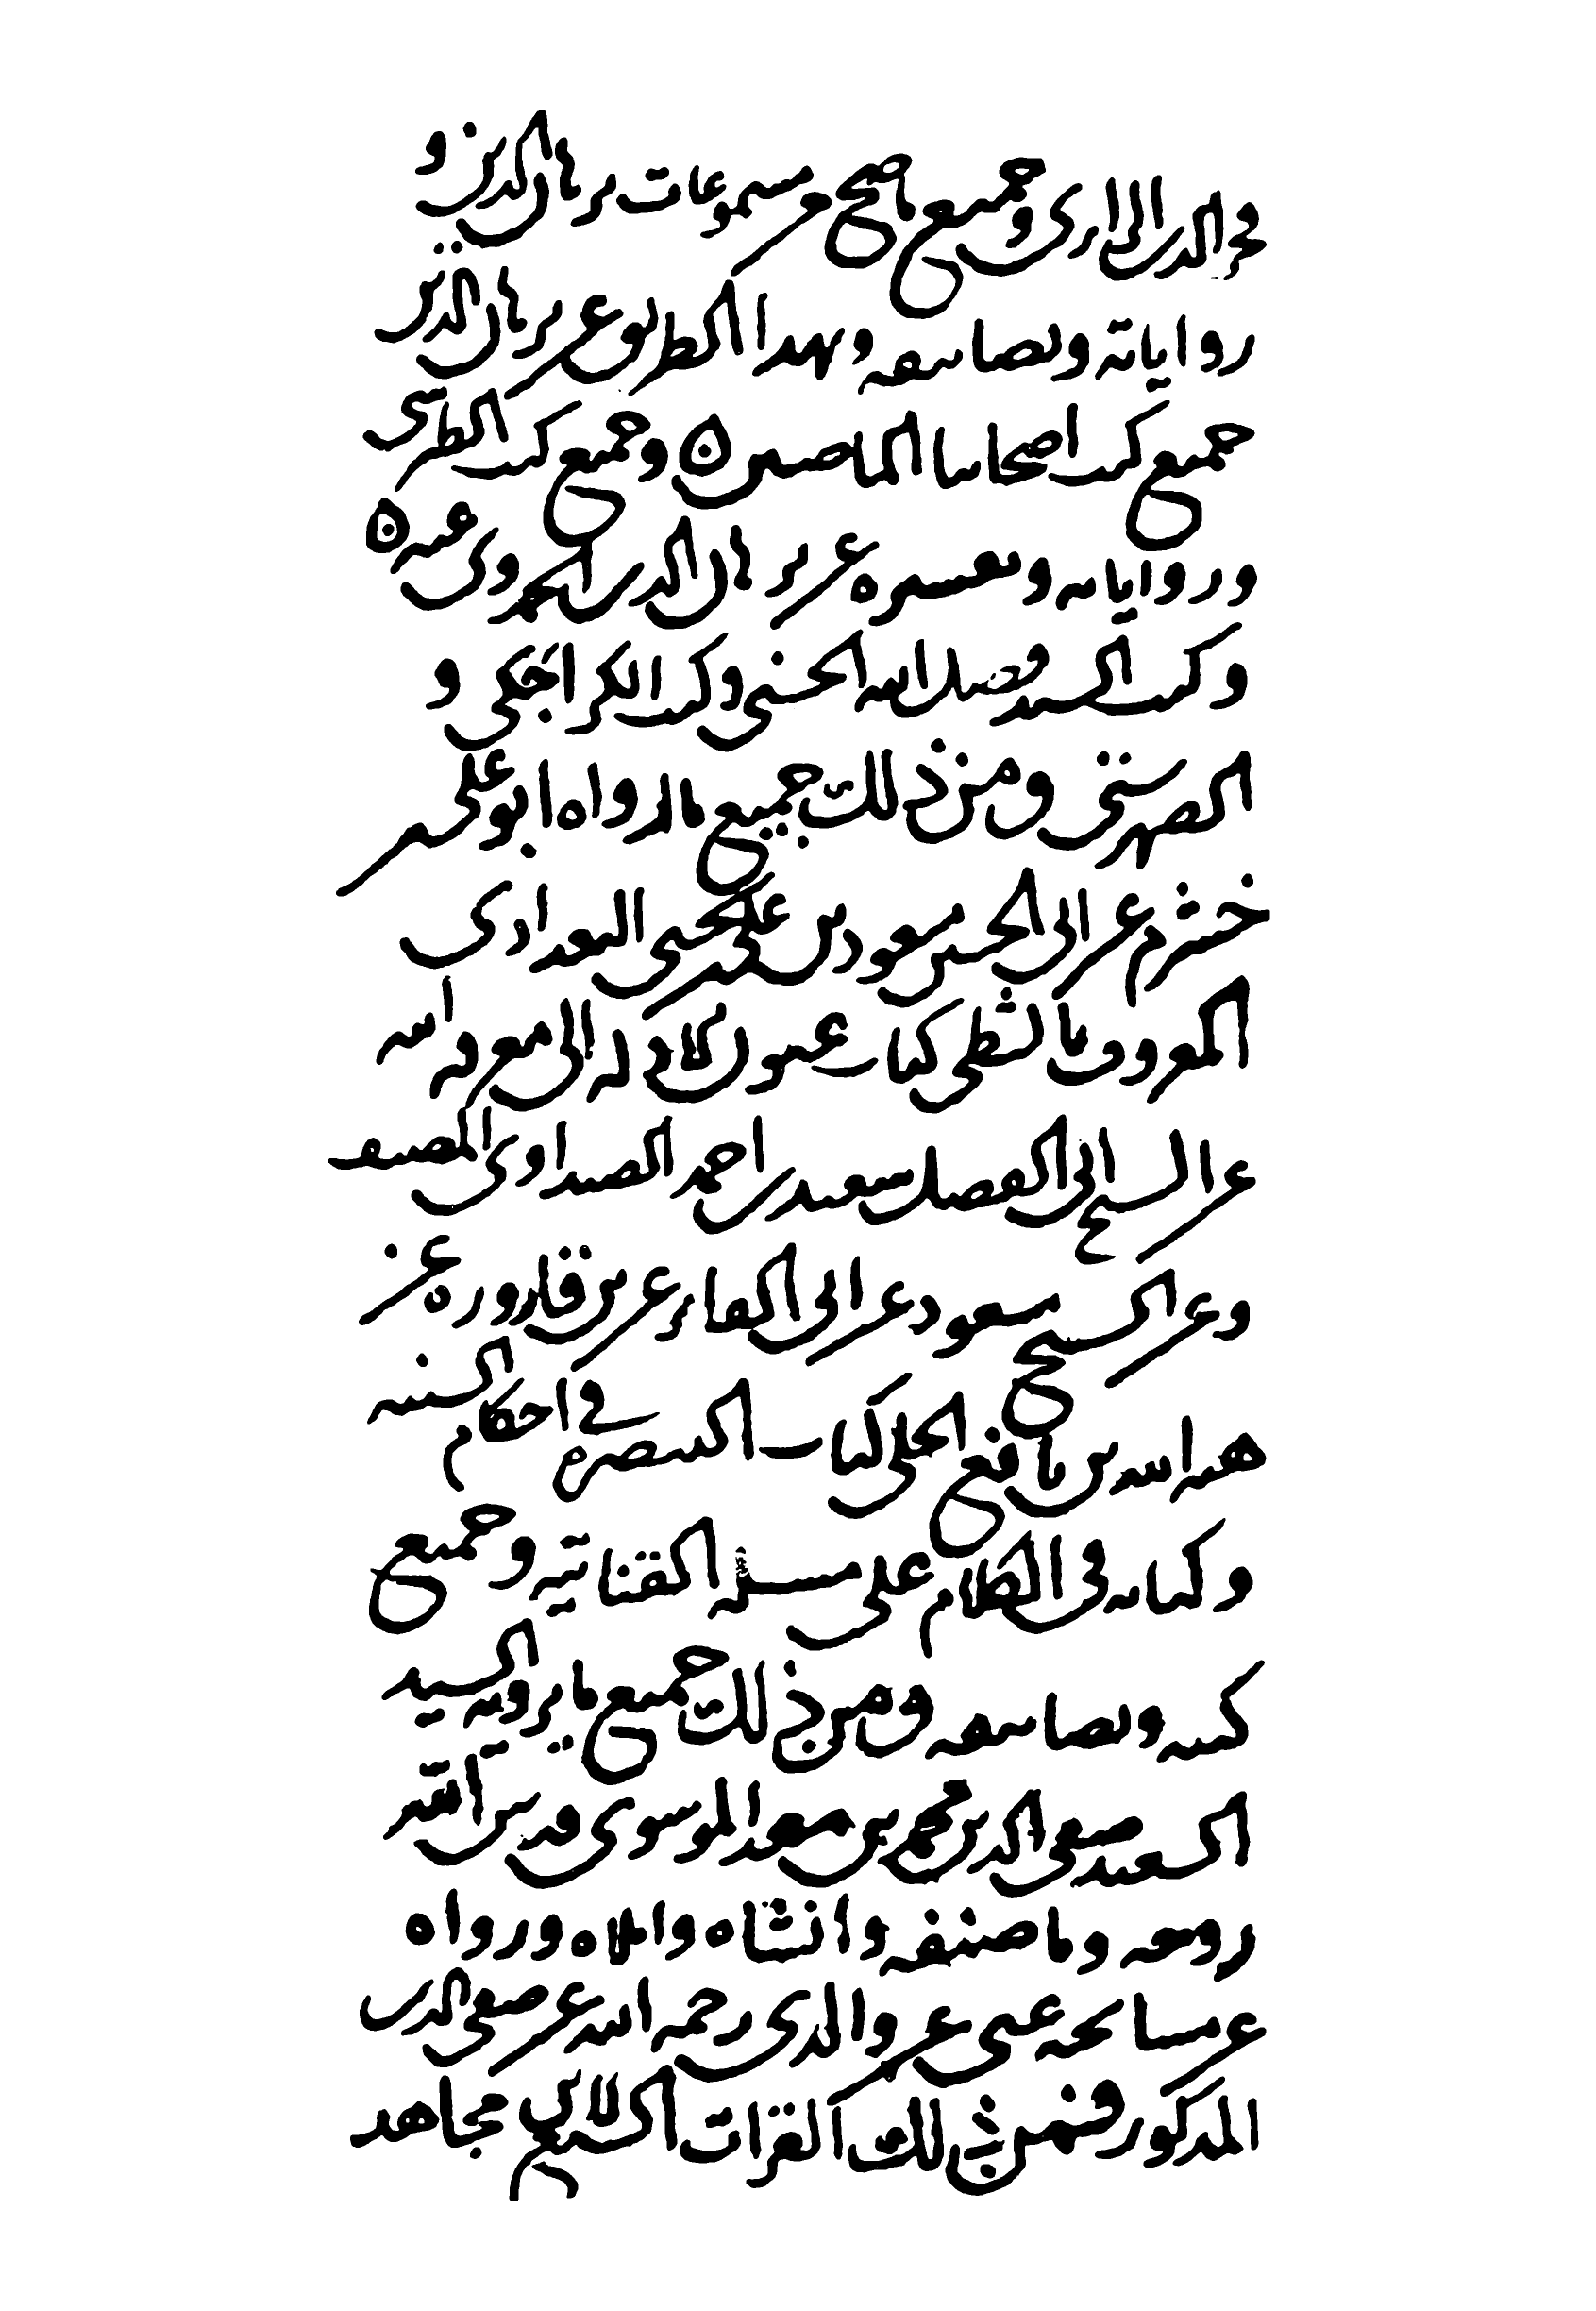 فخر الدين الرازى وجميع ما صح من مسموعات برهان الدين و
رواياته وتصانيفه وبهذا الطريق عن برهان الدين
جميع كتب اصحابنا الماضين وجميع كتب الطبرسى
ورواياته وتفسيره عن برهان الدين الحمدانى وغيره
وكتب السيد فضل الله الحسنى وكتب الكراجكى و
الصهرشتى ومن ذلك جميع ما رواه ابو على محمد
خشرم عن ابى الحسن مسعود بن على بن محمد بن يحيى الصوابى
المعروف بالشطى كتاب عيون الادلة الى معرفة الله
عن الشيخ ابى الفضل سعيد بن احمد الصيداوى المصنف
وعن الشيخ مسعود عن ابى المعا عمر بن قارورة عن
هبة الله بن نافع الحلى كتاب التبصرة فى احكام السنه
وكتابه فى الكلام على مسئلة القنانية وجميع
كتبه وتصانيفه ومن ذلك جميع ما يرويه السيد
السعيد صفى الدين محمد بن معد الموسوى قدس الله
روحه وما صنفه وانشاه واملاه ورواه
عن مشايخه عنى عن والدى رحمه الله عن صفى الدين
المذكور فمن ذلك القرات الكتاب لابن مجاهد